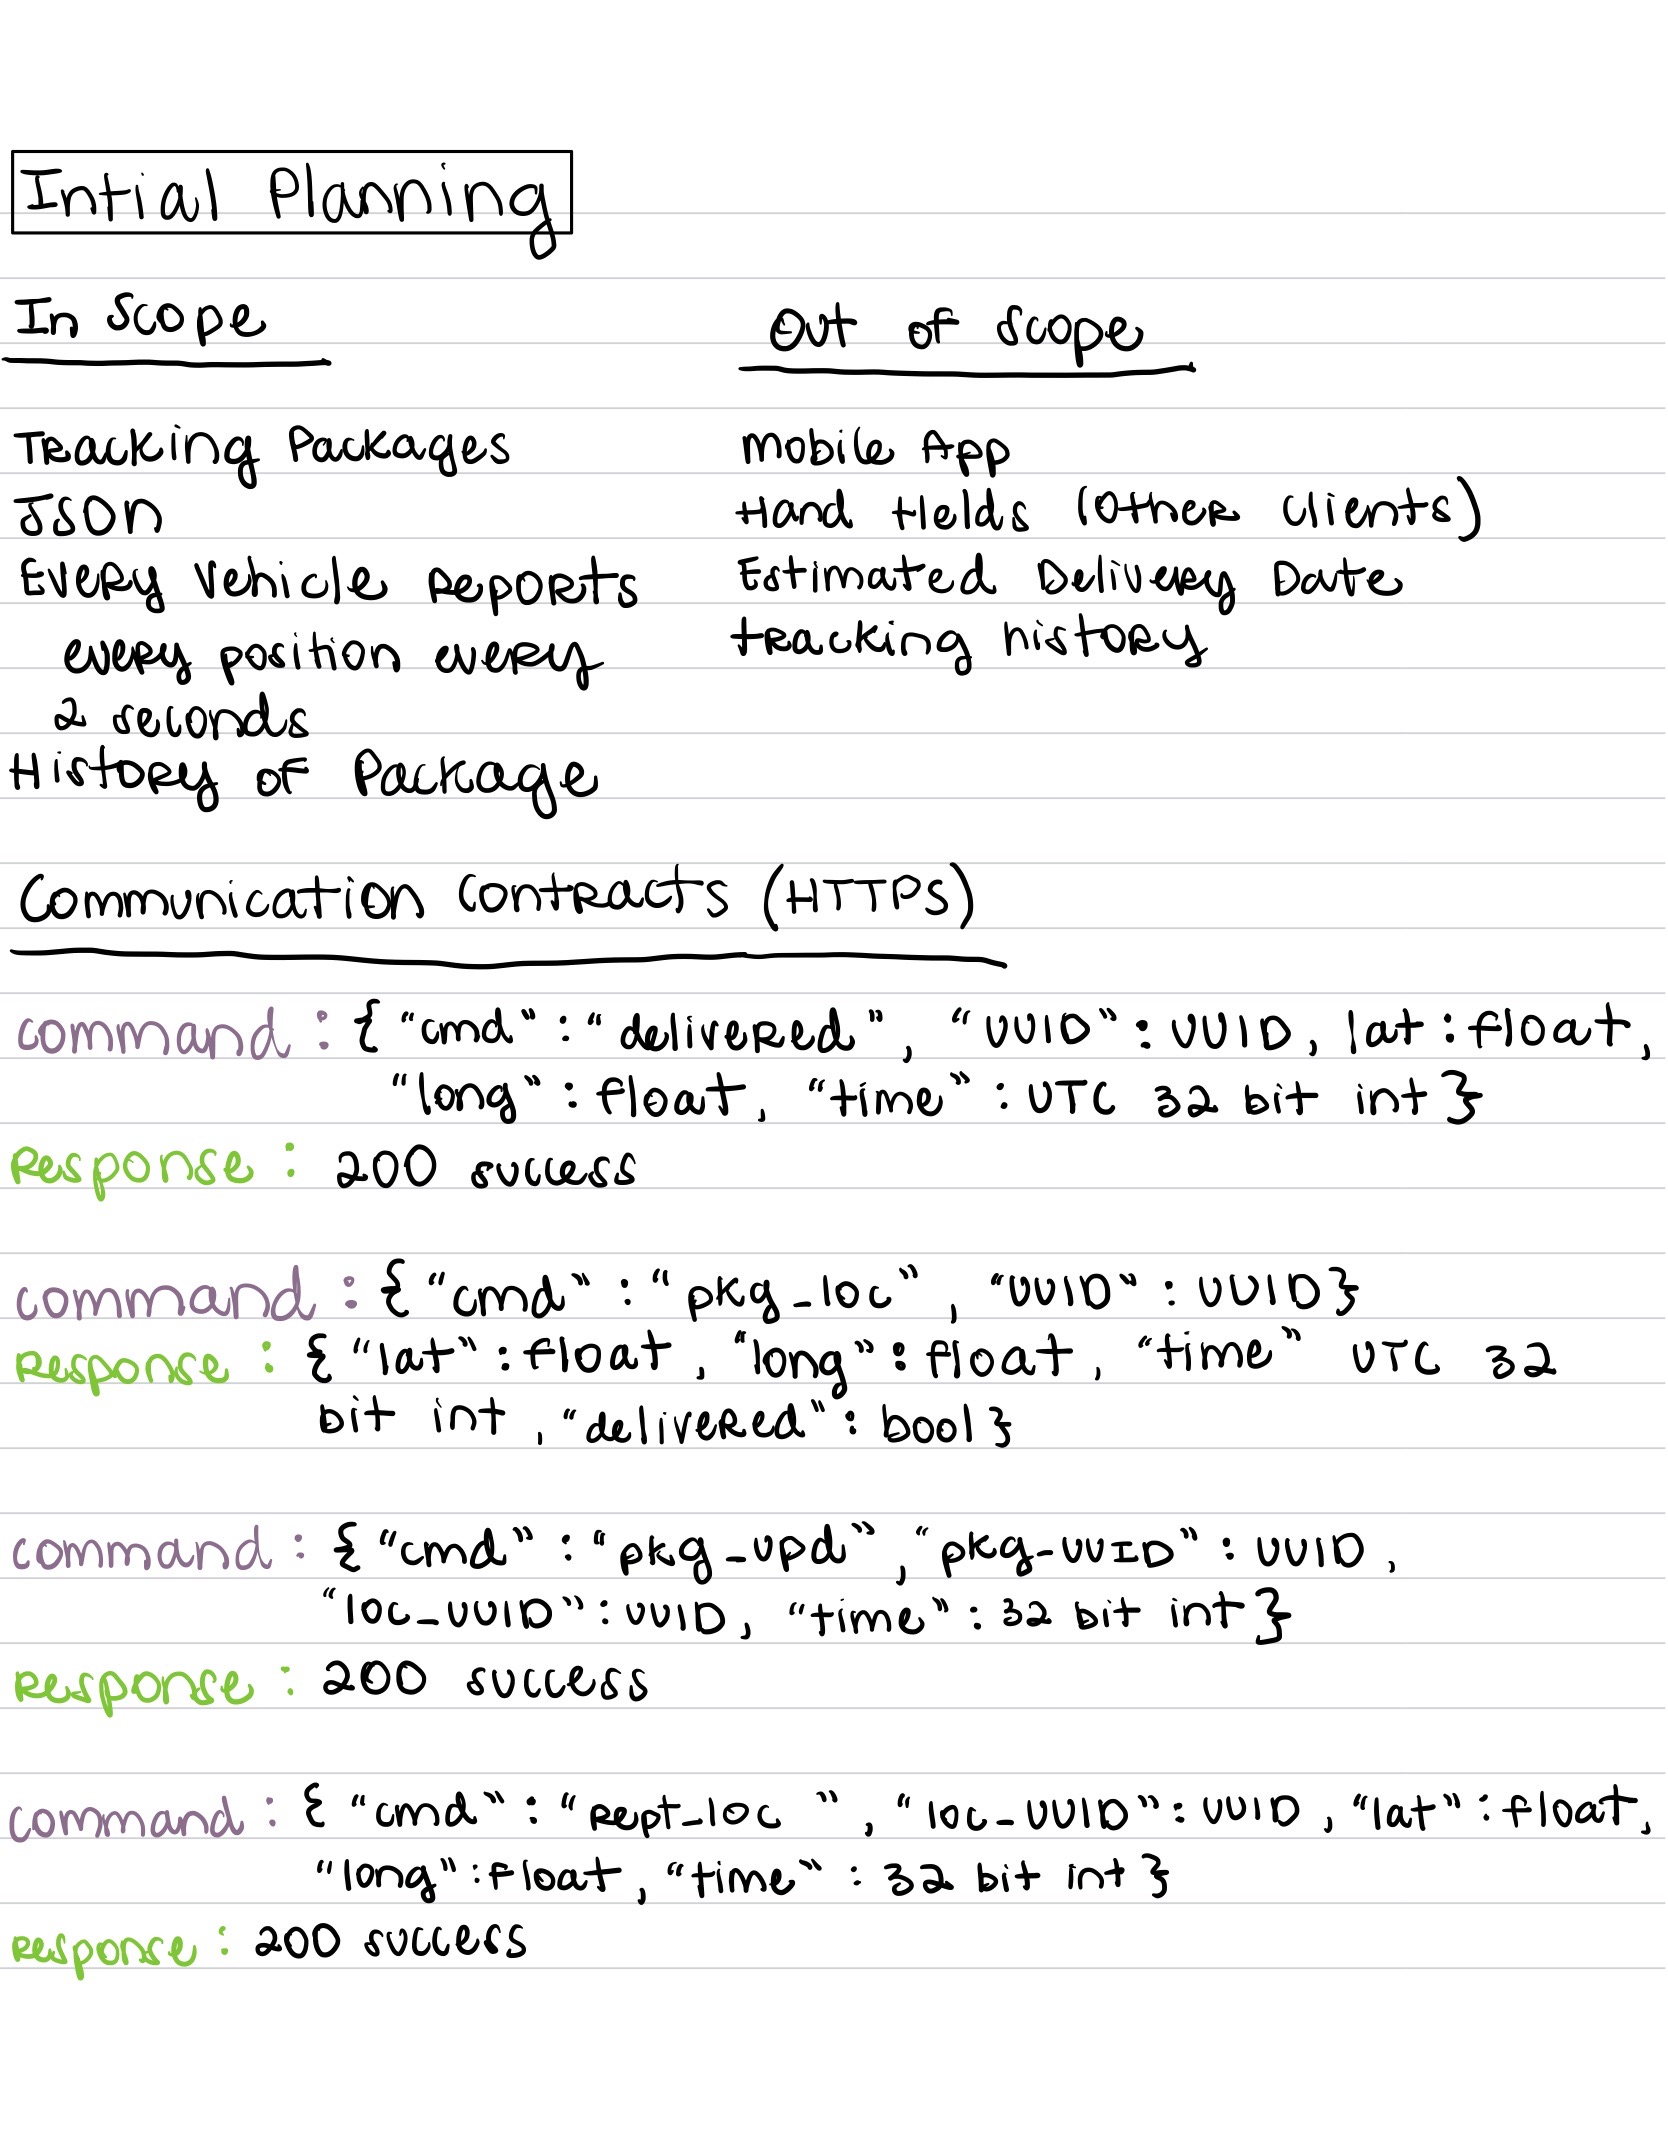 Intial Planning
In Scope
Tracking Packages
JSON
Every Vehicle Reports
every position every
2 seconds
History of Package
Out of Scope
Mobile App
Hand Helds (Other Clients)
Estimated Delivery Date
tracking history
Communication Contracts (HTTPS)
command : { "cmd" : "delivered", "UUID" : UUID, lat : float,
"long" : float, "time" : UTC 32 bit int }
Response : 200 success
command : { "cmd" : "pkg_loc", "UUID" : UUID }
Response : { "lat" : float, "long" : float, "time" UTC 32
bit int, "delivered" : bool }
command : { "cmd" : "pkg_upd", "pkg-UUID" : UUID,
"loc_UUID" : UUID, "time" : 32 bit int }
Response : 200 success
command : { "cmd" : "rept_loc ", "loc-UUID" : UUID, "lat" : float,
"long" : float, "time" : 32 bit int }
Response : 200 success